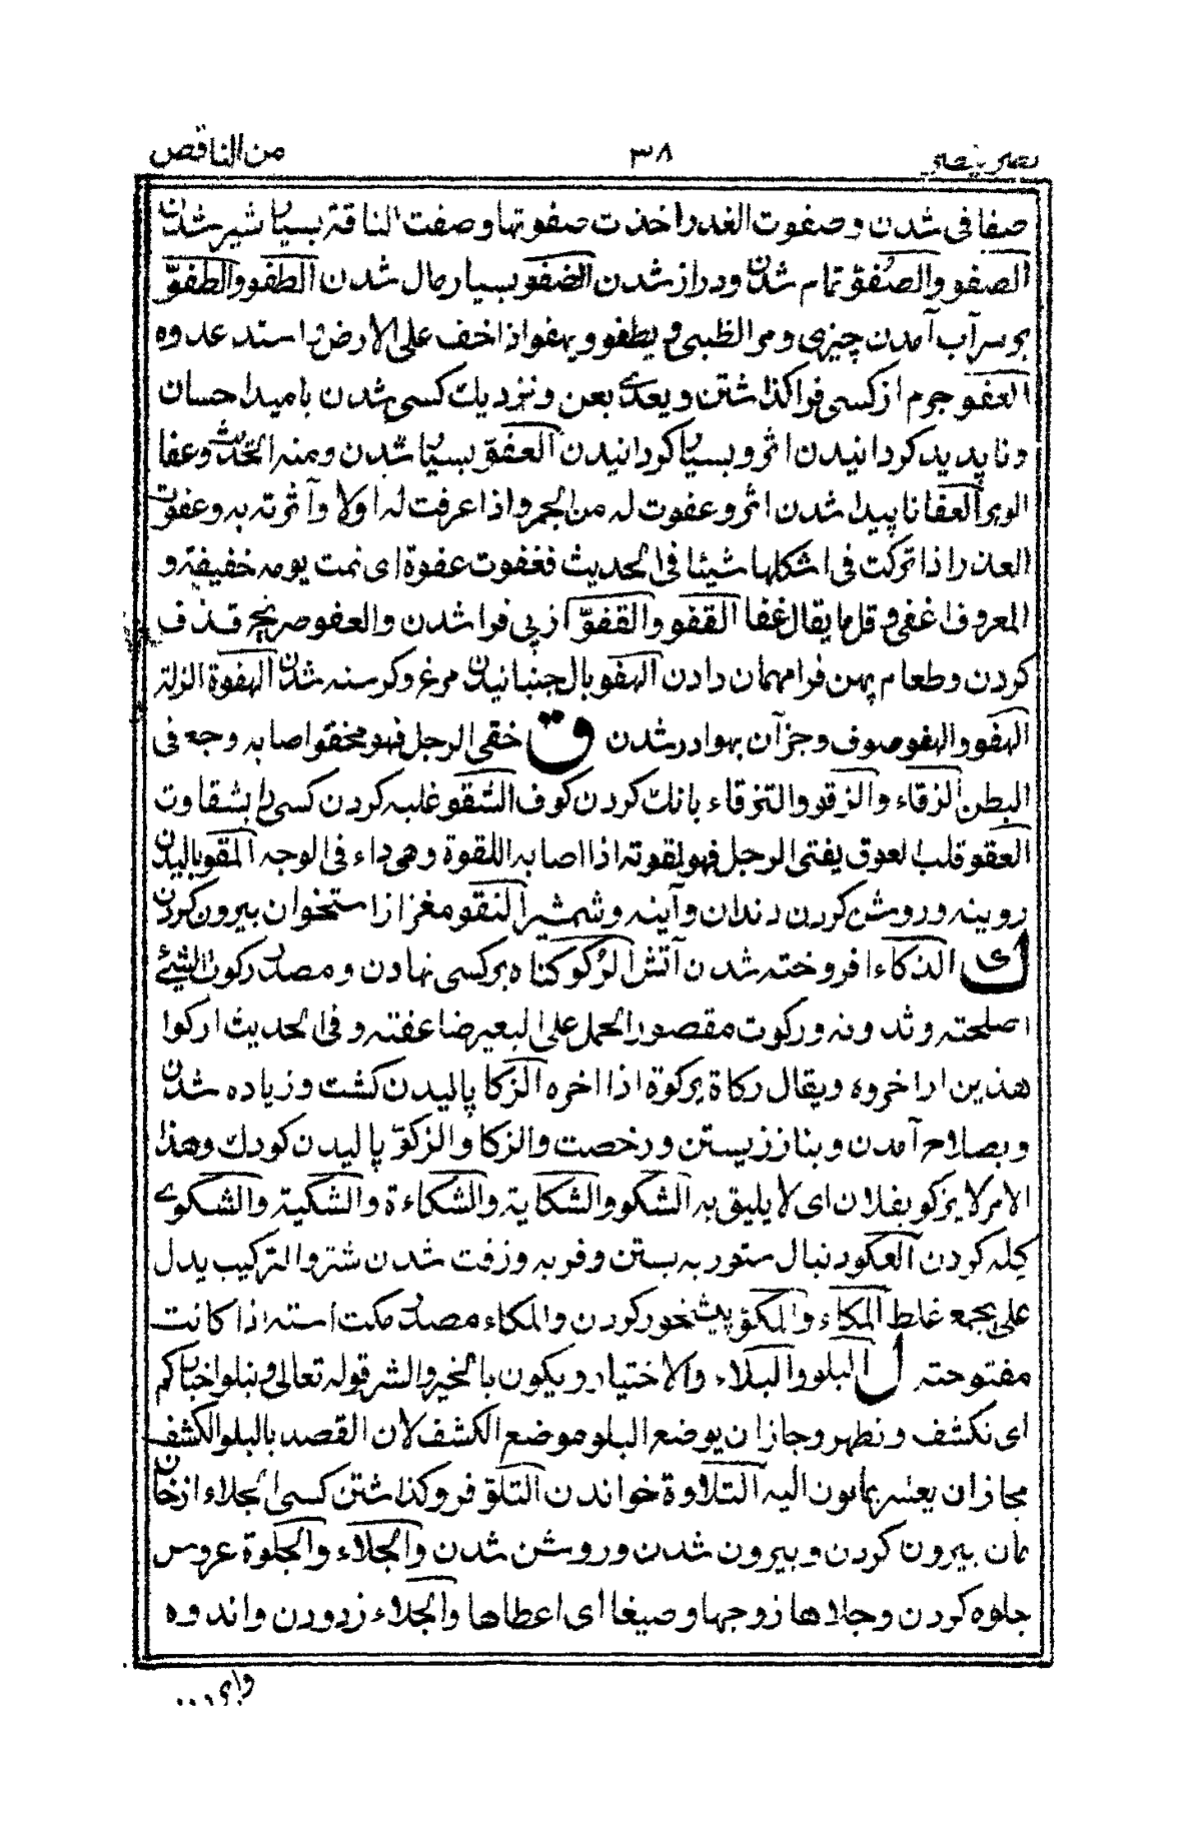 نصر ينصر ٣٨ من الناقص
صفا فی شدن وصفوت القدر اخذت صفوتها وصفت الناقة بسیار شیر شدن
الصفو والصُفوّ تمام شدن ودراز شدن الضفو بسیار مال شدن الطفو والطفوّ
بر سر آب آمدن چیزی ومر الظبی یطفو ویهفو اذا خف علی الارض واستد عدوه
العفو جرم از کسی فرا کذاشتن ویعدی بعن ونزدیك کسی شدن بامید احسان
وناپدید کردانیدن اثر وبسیار کردانیدن العفوّ بسیار شدن ومنه الحدیث وعفا
الوبر العفا ناپیدا شدن اثر وعفوت له من الجمر واذا عرفت له اولا وآثرته به وعفوت
القدر اذا ترکت فی اشکلها شیئا فی الحدیث فغفوت غفوة ای نمت یومه خفیفة و
المعروف اغفی وقل ما یقال غفا القفو والقفوّ از پی فرا شدن والعفو صریح قذف
کردن وطعام پهن فرا مهمان دادن الهفو بال جنبانیدن مرغ وکرسنه شدن الهفوة الزلة
الهفو والهفو صوف وجز آن بهوا در شدن ق خقی الرجل فهو مخقو اصابه وجع فی
البطن الزقاء والزقو والتزقاء بانك کردن کوف الشقو غلبه کردن کسی را بشقاوت
العقو قلب لعوق یفتی الرجل فهو لقوته اذا اصابه اللقوة وهی داء فی الوجه المقو بالیدن
روینه وروشن کردن دندان وآینه وشمشیر النقو مغز از استخوان بیرون کردن
ك الذکاء افروخته شدن آتش الرکو کناه بر کسی نهادن ومصدر رکوت الشیٔ
اصلحته وشدونه ورکوت مقصور الحمل علی البعیر ضاعفته وفی الحدیث ارکوا
هذین ای اخروه ویقال رکاة یرکوة اذا اخره الزکا پالیدن کشت وزیاده شدن
وبصلاح آمدن وبناز زیستن ورخصت والزکا والزکوّ پالیدن کودك وهذا
الامر لا یزکو بفلان ای لا یلیق به الشکو والشکایة والشکاءة والشکیة والشکوی
کله کردن العکو دنبال ستور به بستن وفربه وزفت شدن شتر والترکیب یدل
علی تجمع غلظ المکاء والمکوّ پیشخور کردن والمکاء مصدر مکت استه اذا کانت
مفتوحة ل البلو والبلاء والاختیار ویکون بالخیر والشر قوله تعالی ونبلو اخبارکم
ای نکشف ونظهر وجاز ان یوضع البلو موضع الکشف لان القصد بالبلو الکشف
مجاز ان یعنبر بمابون الیه التلاوة خواندن التلوّ فرو کذاشتن کسی الجلاء از خان
مان بیرون کردن وبیرون شدن وروشن شدن والجلاء والجلوة عروس
جلوه کردن وجلاها زوجها وصیفا ای اعطاها والجلاء زدودن واندوه